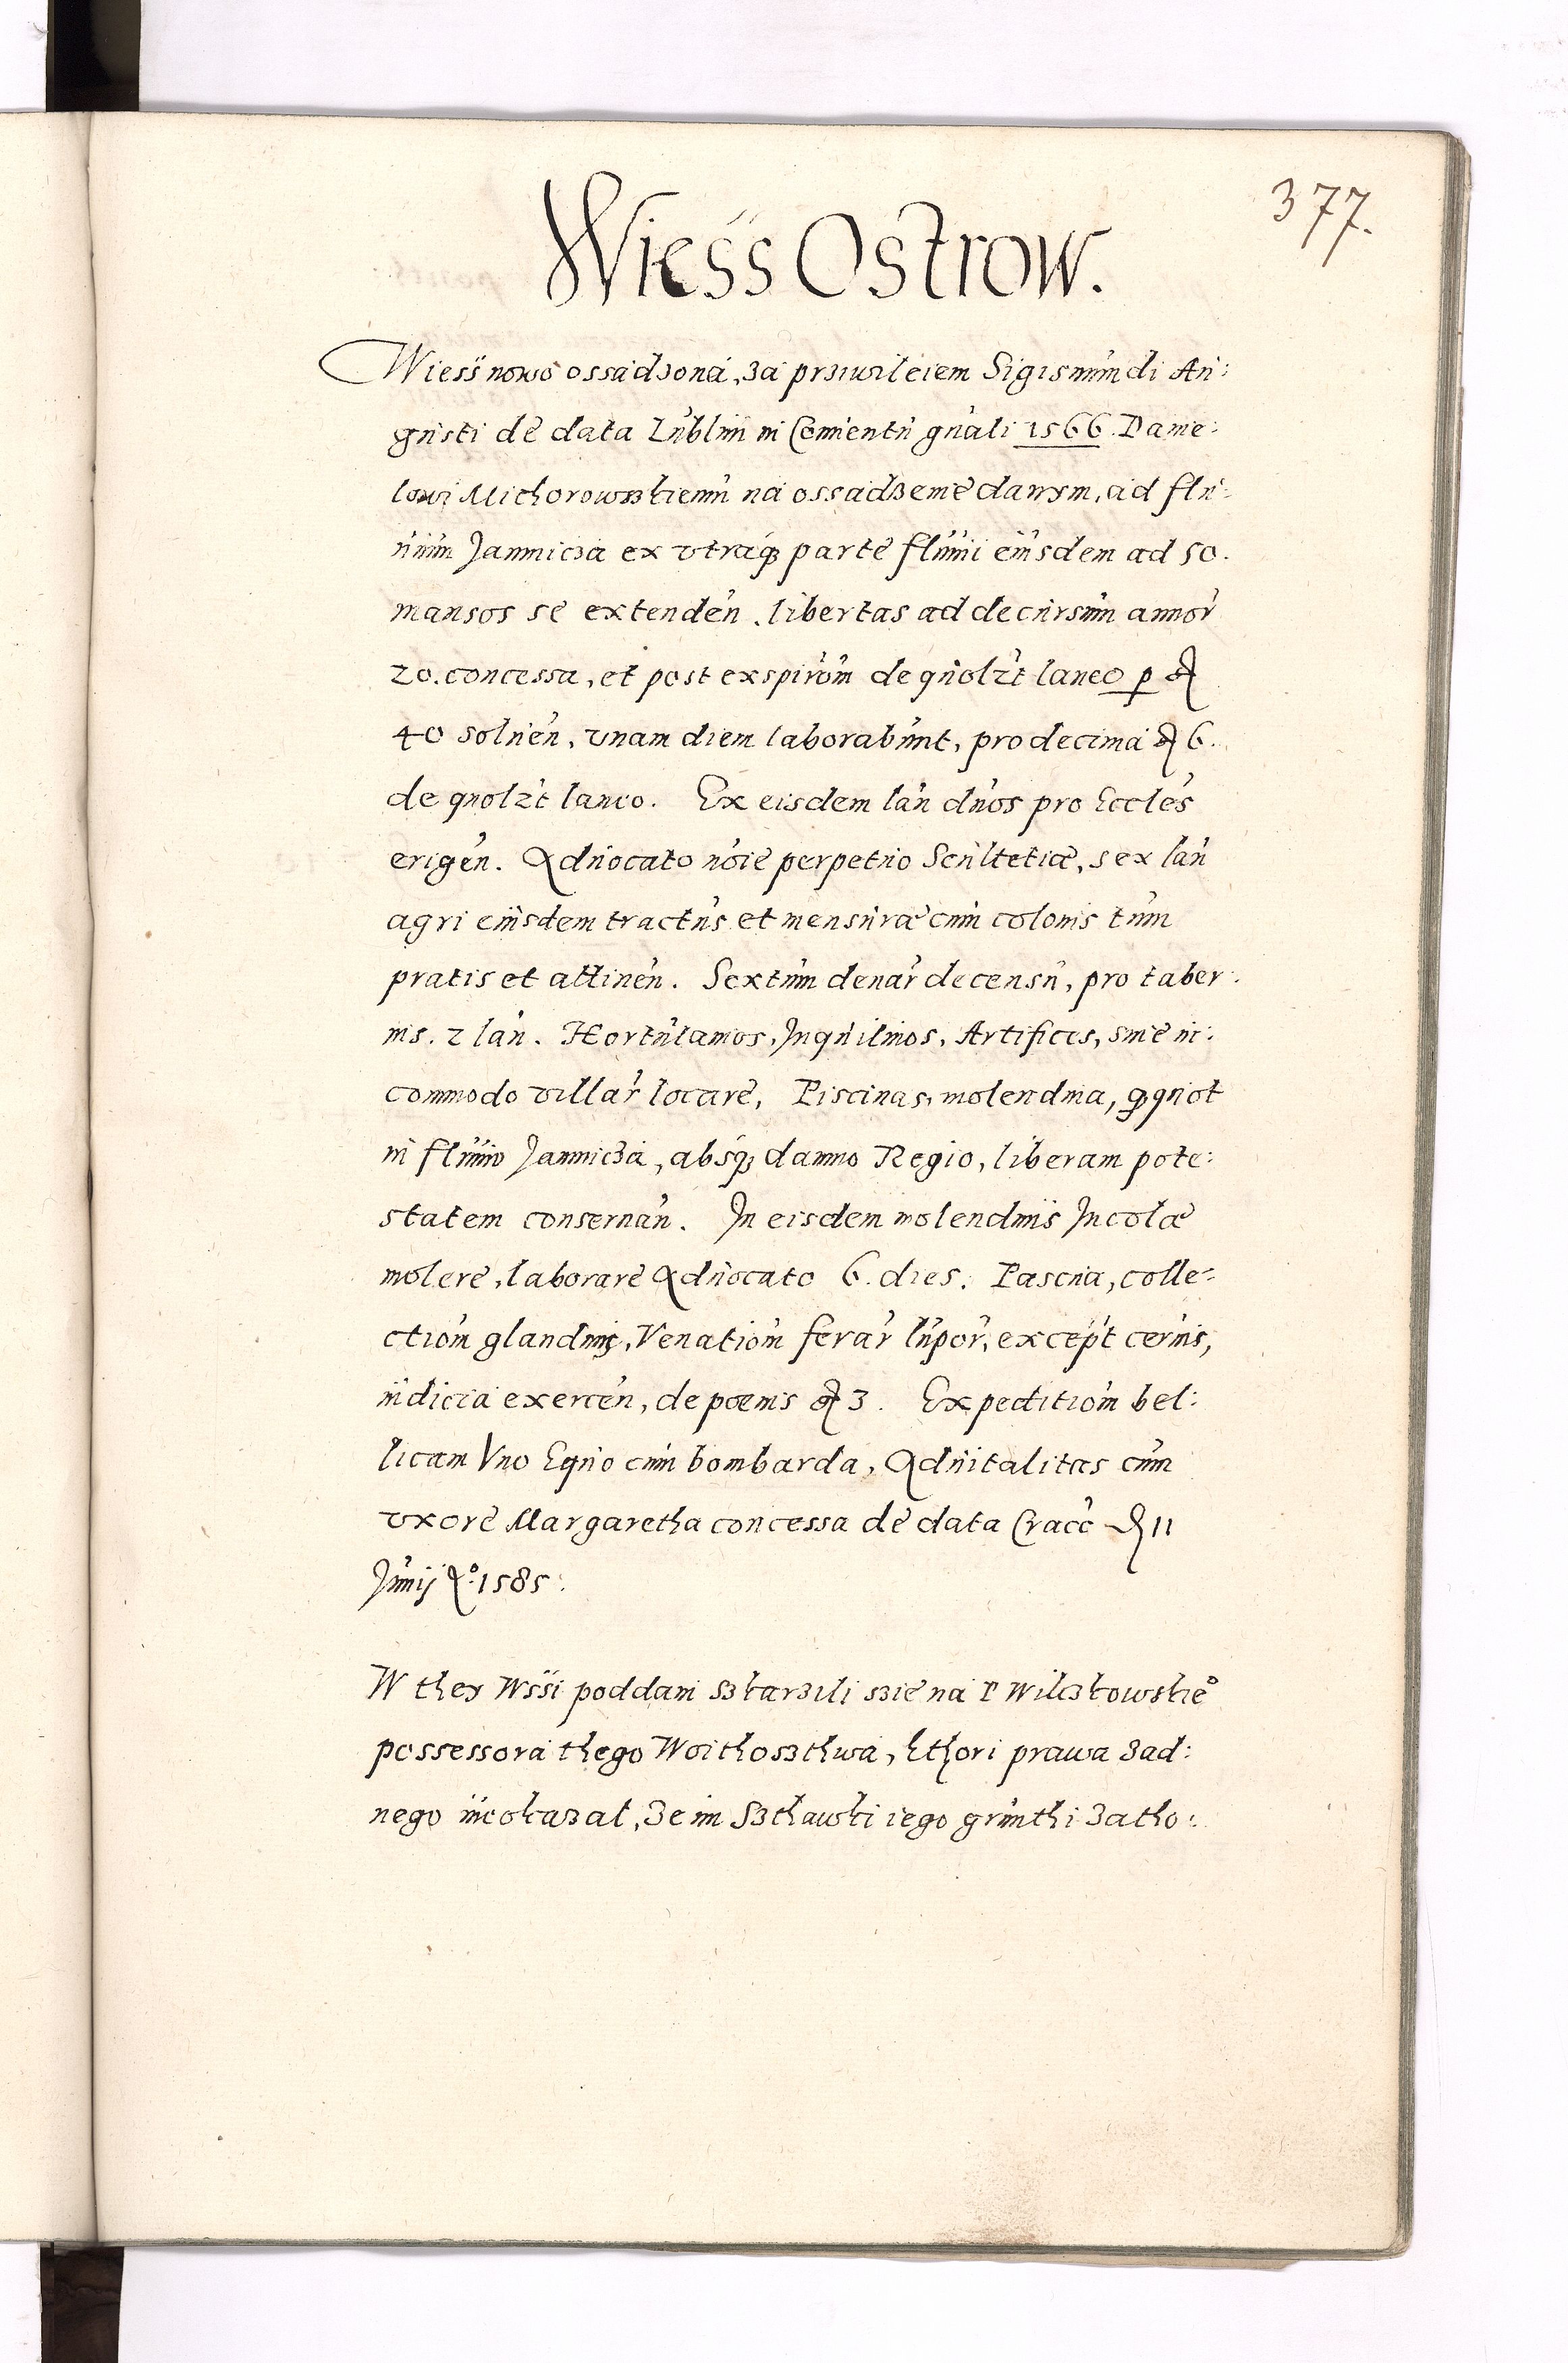 377.
Wiess Ostrow.
Wiess nowo ossadzona, za przÿwileiem Sigismundi Au:
gusti de data Lublini in Conuentu gn̄ali 1566. Danie:
lowi Michorowskiemu na ossadzenie danym, ad flu:
uium Jamnicza ex vtraq; parte fluuii eiusdem ad 50.
mansos se extenden̄. libertas ad decursum annor̄
20. concessa, et post expirōm de quolzt laneo p ꝗ
40 soluēn, vnam diem laborabunt, pro decima ꝗ 6.
de quolzt laneo. Ex eisdem lān duos pro Eccles̄
erigēn. Aduocato nōie perpetuo Scultetiæ, sex lān
agri eiusdem tractus et mensuræ cum colonis tum
pratis et attinēn. Sextum denār de censu, pro taber:
nis. 2 lān. Hortulanos, Inquilinos, Artifices, sine in:
commodo villār locare, Piscinas, molendina, quotquot
in fluuio Jamnicza, absq; damno Regio, liberam pote:
statem conseruān. In eisdem molendinis Incolæ
molere, laborare Aduocato 6. dies. Pascua, colle:
ctiōm glandinis, Venatiōm ferār lupōr, excep̄t ceruis,
iudicia exercēn, de poenis ꝗ 3. Expeditiōm bel:
licam Vno Equo cum bombarda, Aduitalitas cum
vxore Margaretha concessa de data Cracc̄ D 11
Junij A.º 1585.
W they Wssi poddani szkarzili szie na P Wilczkowskie°
possessora thego Woithosthwa, kthori prawa zad:
nego nieokazal, ze im Szthawki iego grunthi zatho: